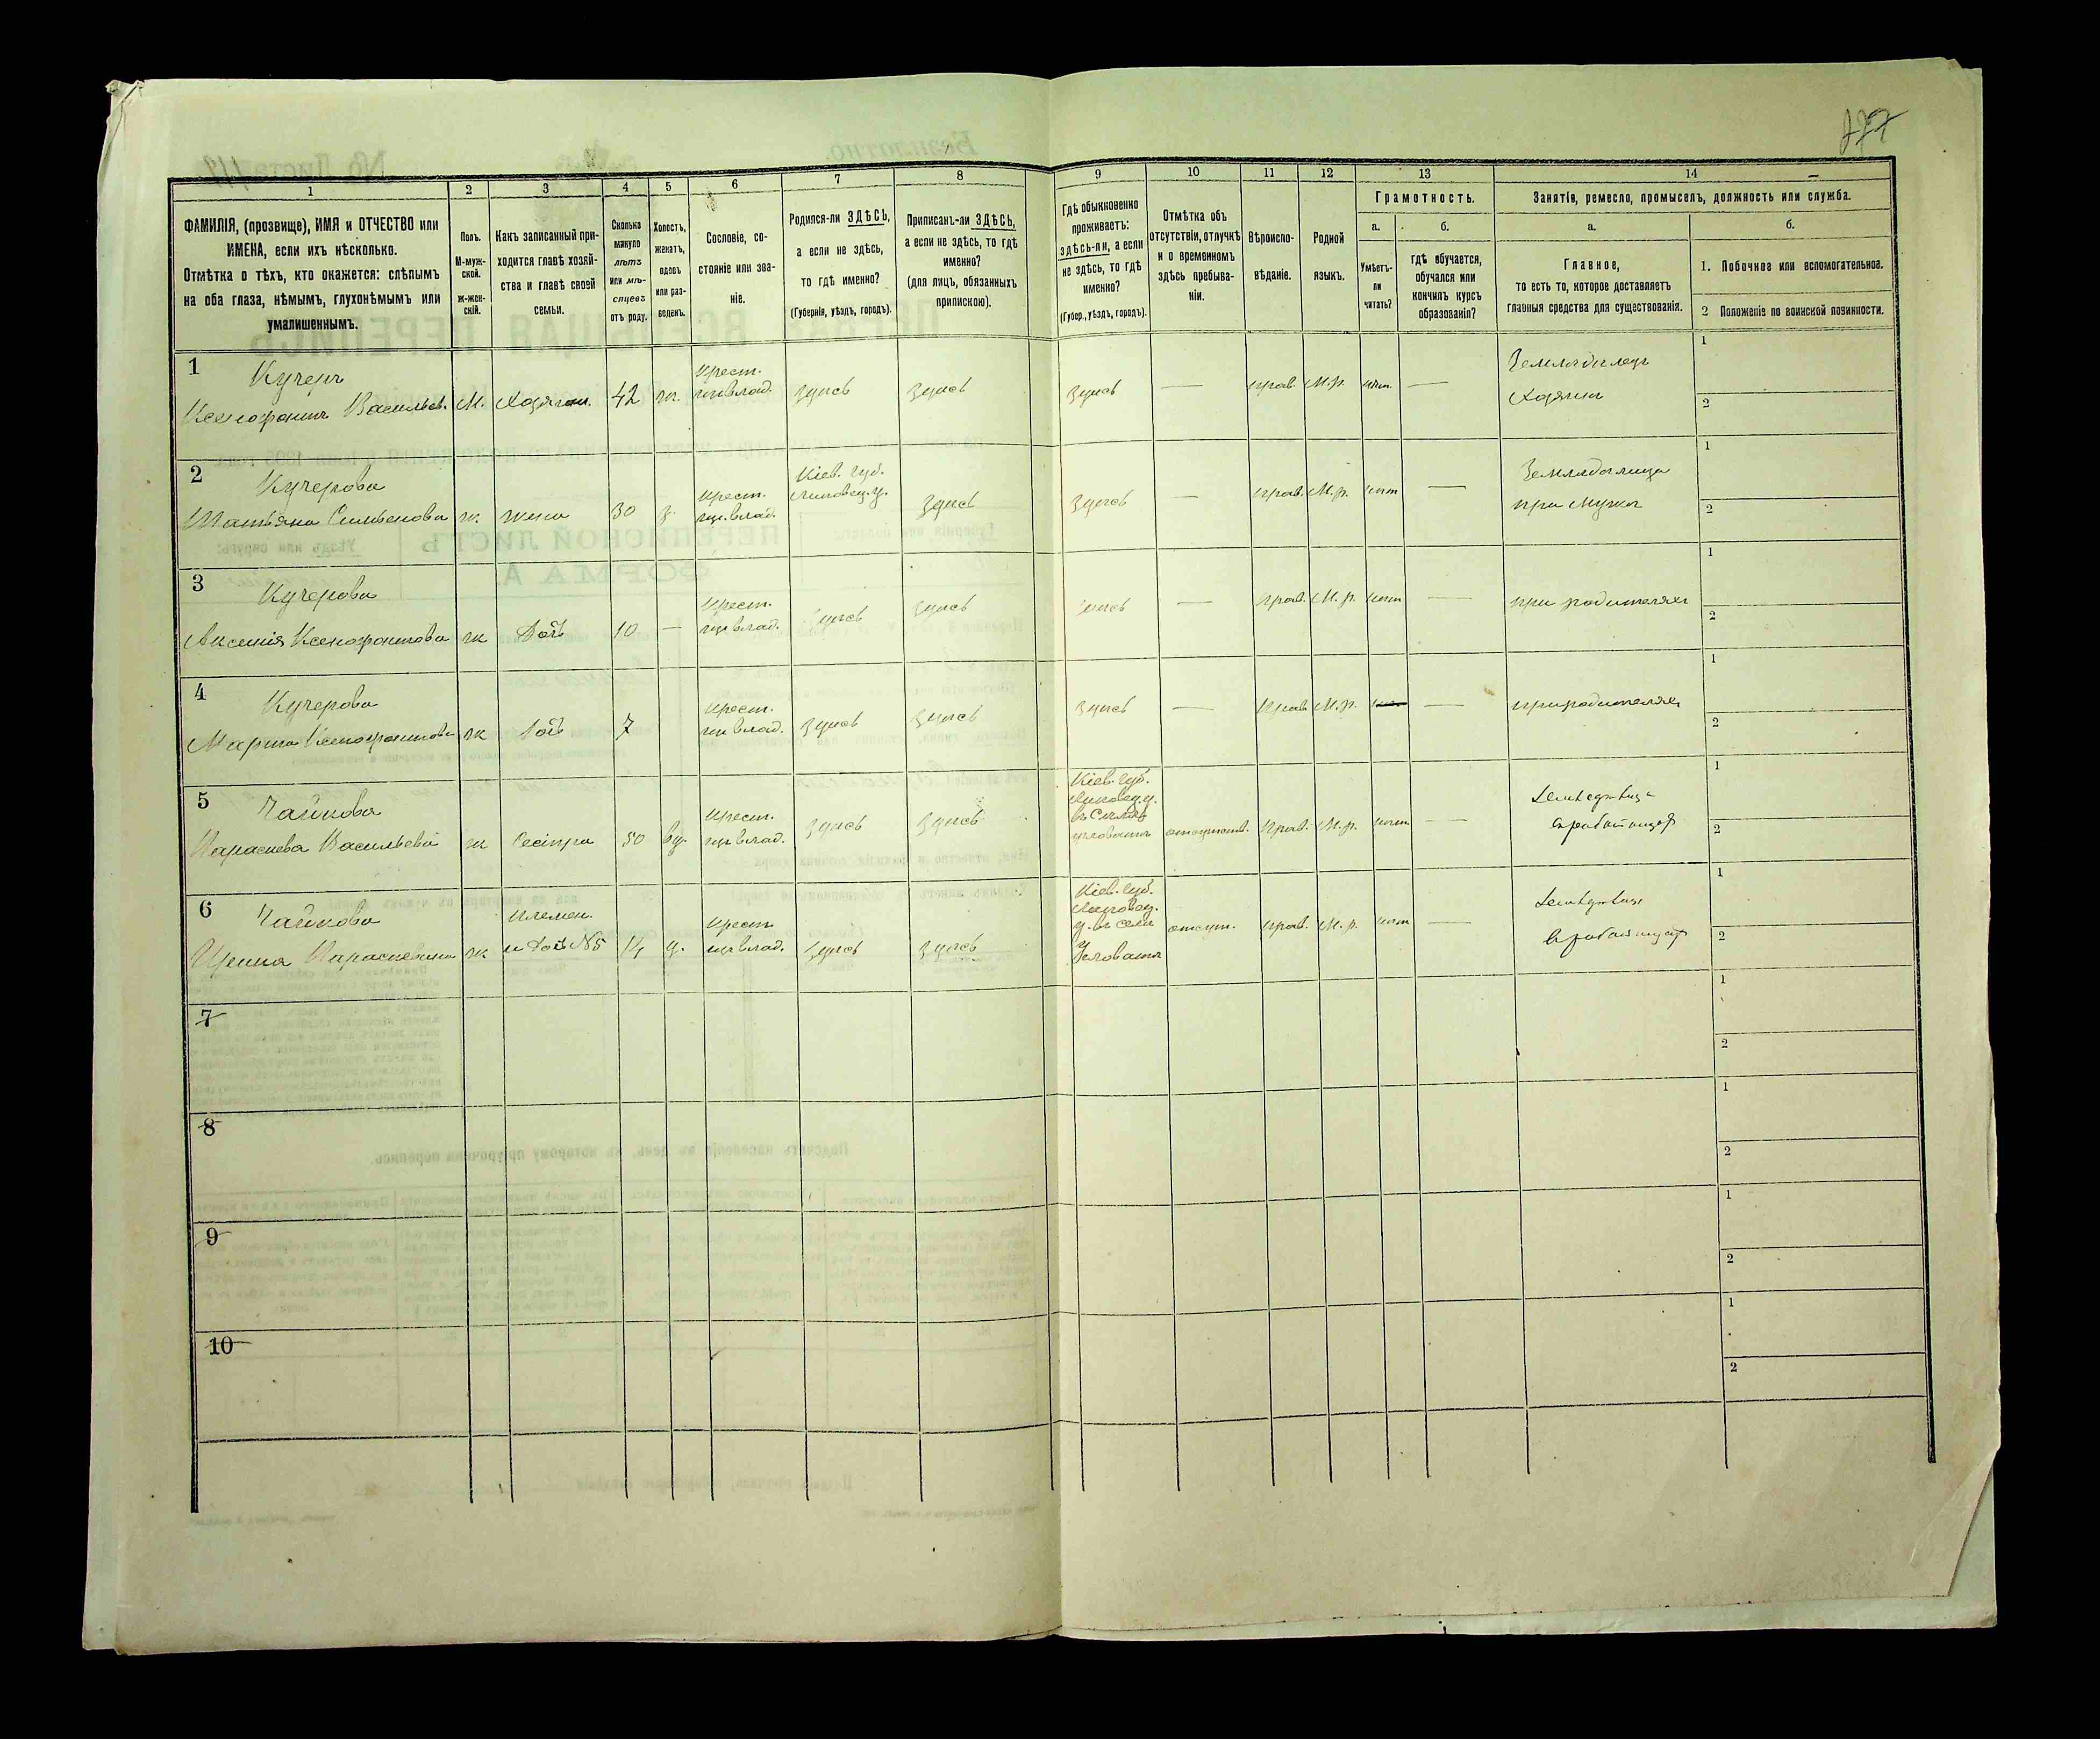 1
2
3
4
5
6
7
8
9
10
11
12
13
14
ФАМИЛІЯ, (прозвище), ИМЯ и ОТЧЕСТВО или
ИМЕНА, если ихъ нѣсколько.
Отмѣтка о тѣхъ, кто окажется: слѣпымъ
на оба глаза, нѣмымъ, глухонѣмымъ или
умалишеннымъ.
Полъ.
М-муж-
ской.
ж-жен-
скій.
Какъ записанный при-
ходится главѣ хозяй-
ства и главѣ своей
семьи.
Сколько
минуло
лѣтъ
или мѣ-
сяцевъ
отъ роду.
Холостъ,
женатъ,
вдовъ
или раз-
веденъ.
Сословіе, со-
стояніе или зва-
ніе.
Родился-ли ЗДѢСЬ,
а если не здѣсь,
то гдѣ именно?
(Губернія, уѣздъ, городъ).
Приписанъ-ли ЗДѢСЬ,
а если не здѣсь, то гдѣ
именно?
(для лицъ, обязанныхъ
припискою).
Гдѣ обыкновенно
проживаетъ:
здѣсь-ли, а если
не здѣсь, то гдѣ
именно?
(Губер., уѣздъ, городъ).
Отмѣтка объ
отсутствіи, отлучкѣ
и о временномъ
здѣсь пребыва-
ніи.
Вѣроиспо-
вѣданіе.
Родной
языкъ.
Грамотность.
а.
б.
Умѣетъ-
ли
читать?
гдѣ обучается,
обучался или
кончилъ курсъ
образованія?
Занятія, ремесло, промыселъ, должность или служба.
а.
б.
Главное,
то есть то, которое доставляетъ
главныя средства для существованія.
1. Побочное или вспомогательное.
2 Положеніе по воинской повинности.
1
Кучеръ
Ксенофонтъ Васильев. М. Хозяинъ 42 ж. крест. здесь здесь здесь — прав. М.р. нѣт —
Земледелецъ
Хозяинъ
1
2
2
Кучерова
Татьяна ж. жена 30 з. крест. Кіев. губ. Липовец. у. здесь здесь — прав. М.р. нѣт —
при мужѣ
1
2
3
Кучерова
Аксенія Ксенофонтова ж дочь 10 — крест. здесь здесь здесь — прав. М.р. нѣт — при родителях
1
2
4
Кучерова
Марта Ксенофонтова ж дочь 7 крест. здесь здесь здесь — прав М.р. нѣт — при родителях
1
2
5
Чайкова
Параскева Васильева ж Сестра 50 вд. крест. здесь здесь Кіев. губ. Липовец. у. отсутств. прав. М.р. нѣт —
1
2
6
Чайкова
ж племен. и дочь №5 14 д. крест. здесь здесь Кіев. губ. Липовец. у. въ селѣ отсут. прав. М.р. нѣт —
1
2
7
1
2
8
1
2
9
1
2
10
1
2